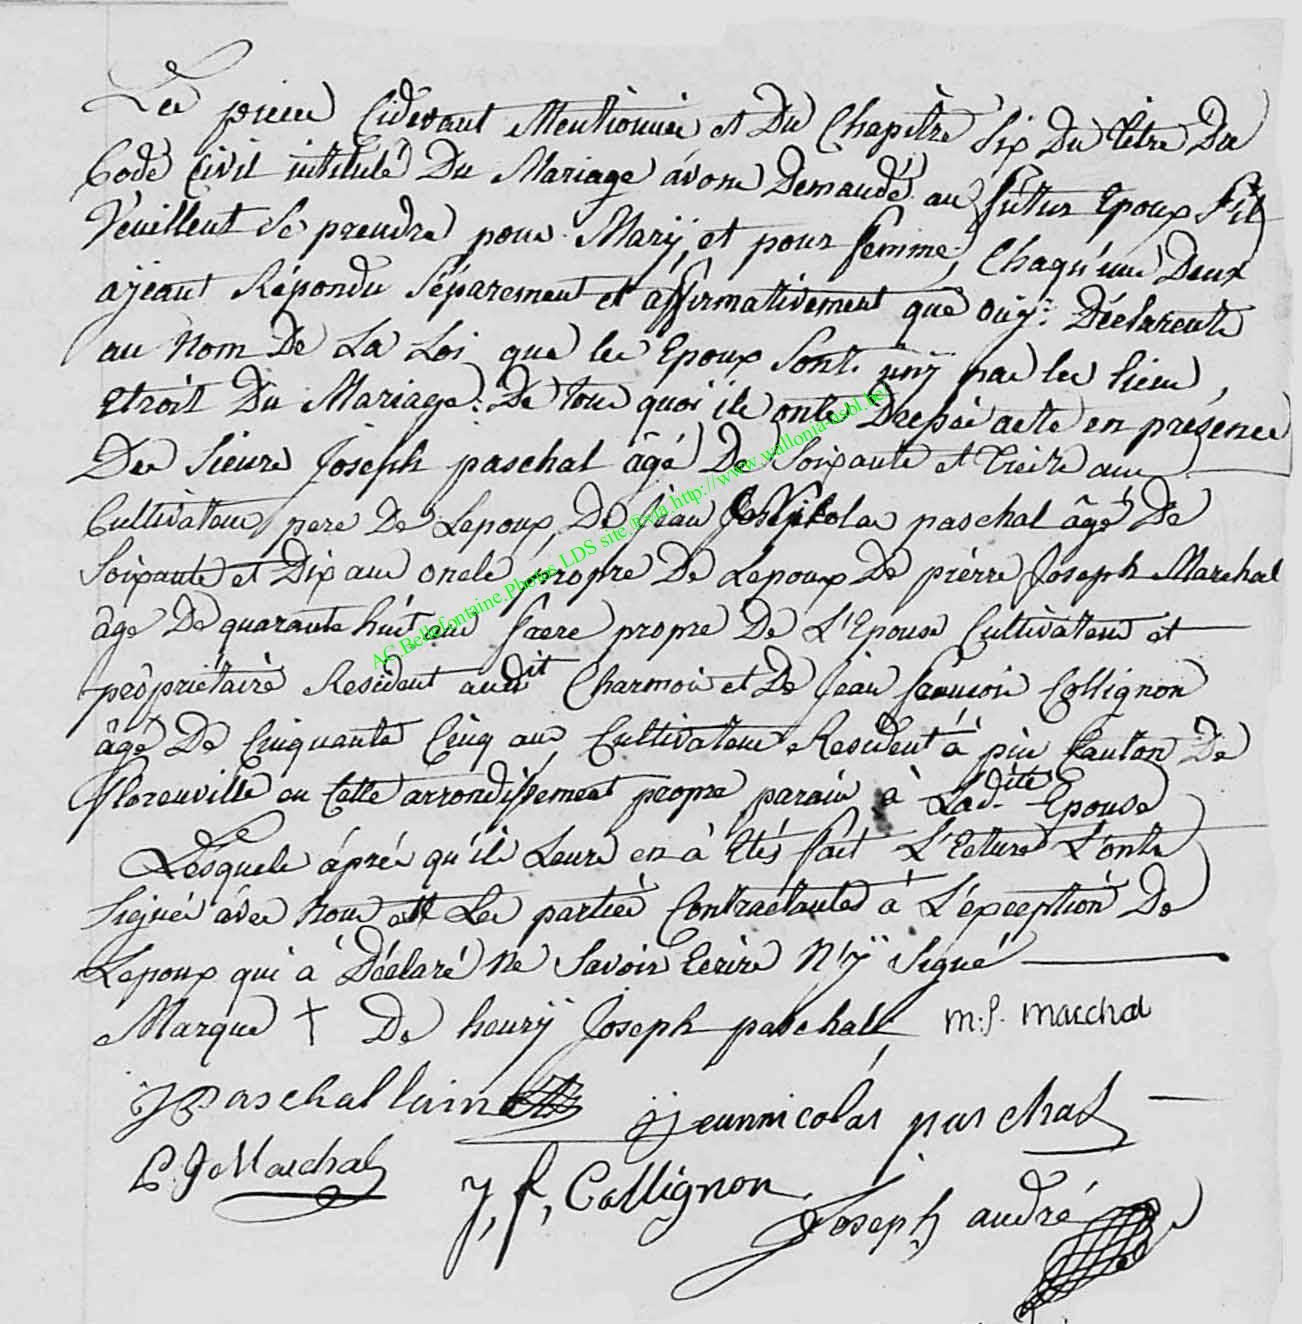 Les pieces Cidevant Mentionnées et Du Chapitre Six Du titre Du
Code Civil intitulé Du Mariage avons Demandé au futur Epoux S'il
Veuillent Se prendre pour Marÿ, et pour femme, Chaqu'un Deux
ajeant Répondu Séparement et affirmativement que ouÿ: Déclarents
au Nom De La Loi que les Epoux Sont unÿ par les liens,
Etroit Du Mariage: De tous quoi ils onts Dressés acte en présence
Des Sieurs Joseph paschal âgé De Soixante et treize ans
Cultivateur pere De Lepoux, De Jean Nikolas paschal âgé De
Soixante et Dix ans oncle propre De Lepoux De pierre Joseph Marchal
âgé De quarante huit ans frere propre De L'Epouse Cultivateurs et
propriétaire Resident audit Charmois et De Jean françois Collignon
âgé De Cinquante Cinq ans Cultivateur Resident à pin Canton De
florenville en Cette arrondissement propre parain à Ladite Epouse
Lesquels aprés qu'ils Leurs en à Etés fait L'Ecture L'onts
Signés avec Nous et Les parties Contractantes à L'éxception De
Lepoux qui à Déclaré Ne Savoir Ecrire N'ÿ Signé
Marque † De henrÿ Joseph paschal m:j. marchal
J Paschal lainé
jeannicolas paschal
P. J Marchal
J, f, Collignon
Joseph andré
AC.Bellefontaine.Photos LDS site ®via http://www.wallonia-asbl.be/